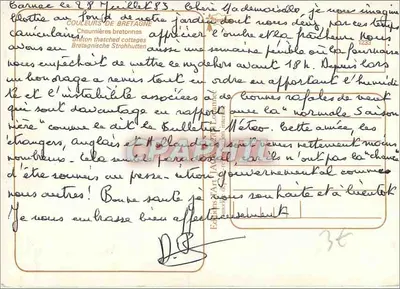 Carnac le 28 Juillet 83 Chère Mademoiselle, je vous imagine
au fond de votre jardin dont nous deux par ces temps
caniculaires apprécier l'ombre et la fraîcheur Nous
avons eu aussi une semaine pénible où la fournaise
nous empêchait de mettre le nez dehors avant 18h. Depuis lors
un orage a remis tout en ordre en apportant l'humidi
té et l'instabilité associées de bonnes rafales de vent
qui sont davantage en rapport avec la "normale saison
nière" comme le dit le Bulletin Météo. Cette année, les
étrangers, anglais et sont nettement moins
nombreux. Cela n'ont pas la "chance"
d'être soumis au gouvernemental comme
nous autres! Bonne santé je vous souhaite et à bientôt
Je vous embrasse bien affectueusement
COULEURS DE BRETAGNE
Chaumières bretonnes
Breton thatched cottages
Bretagnische Strohhütten
3€